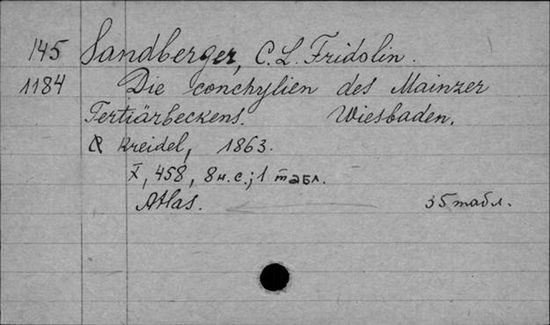 145 Sandberger, C. L. Fridolin.
1184 Die conchylien des Mainzer
Tertiärbeckens. Wiesbaden,
Kreidel, 1863.
X, 458, 8 н. с.; 1 табл.
Atlas. 35 табл.